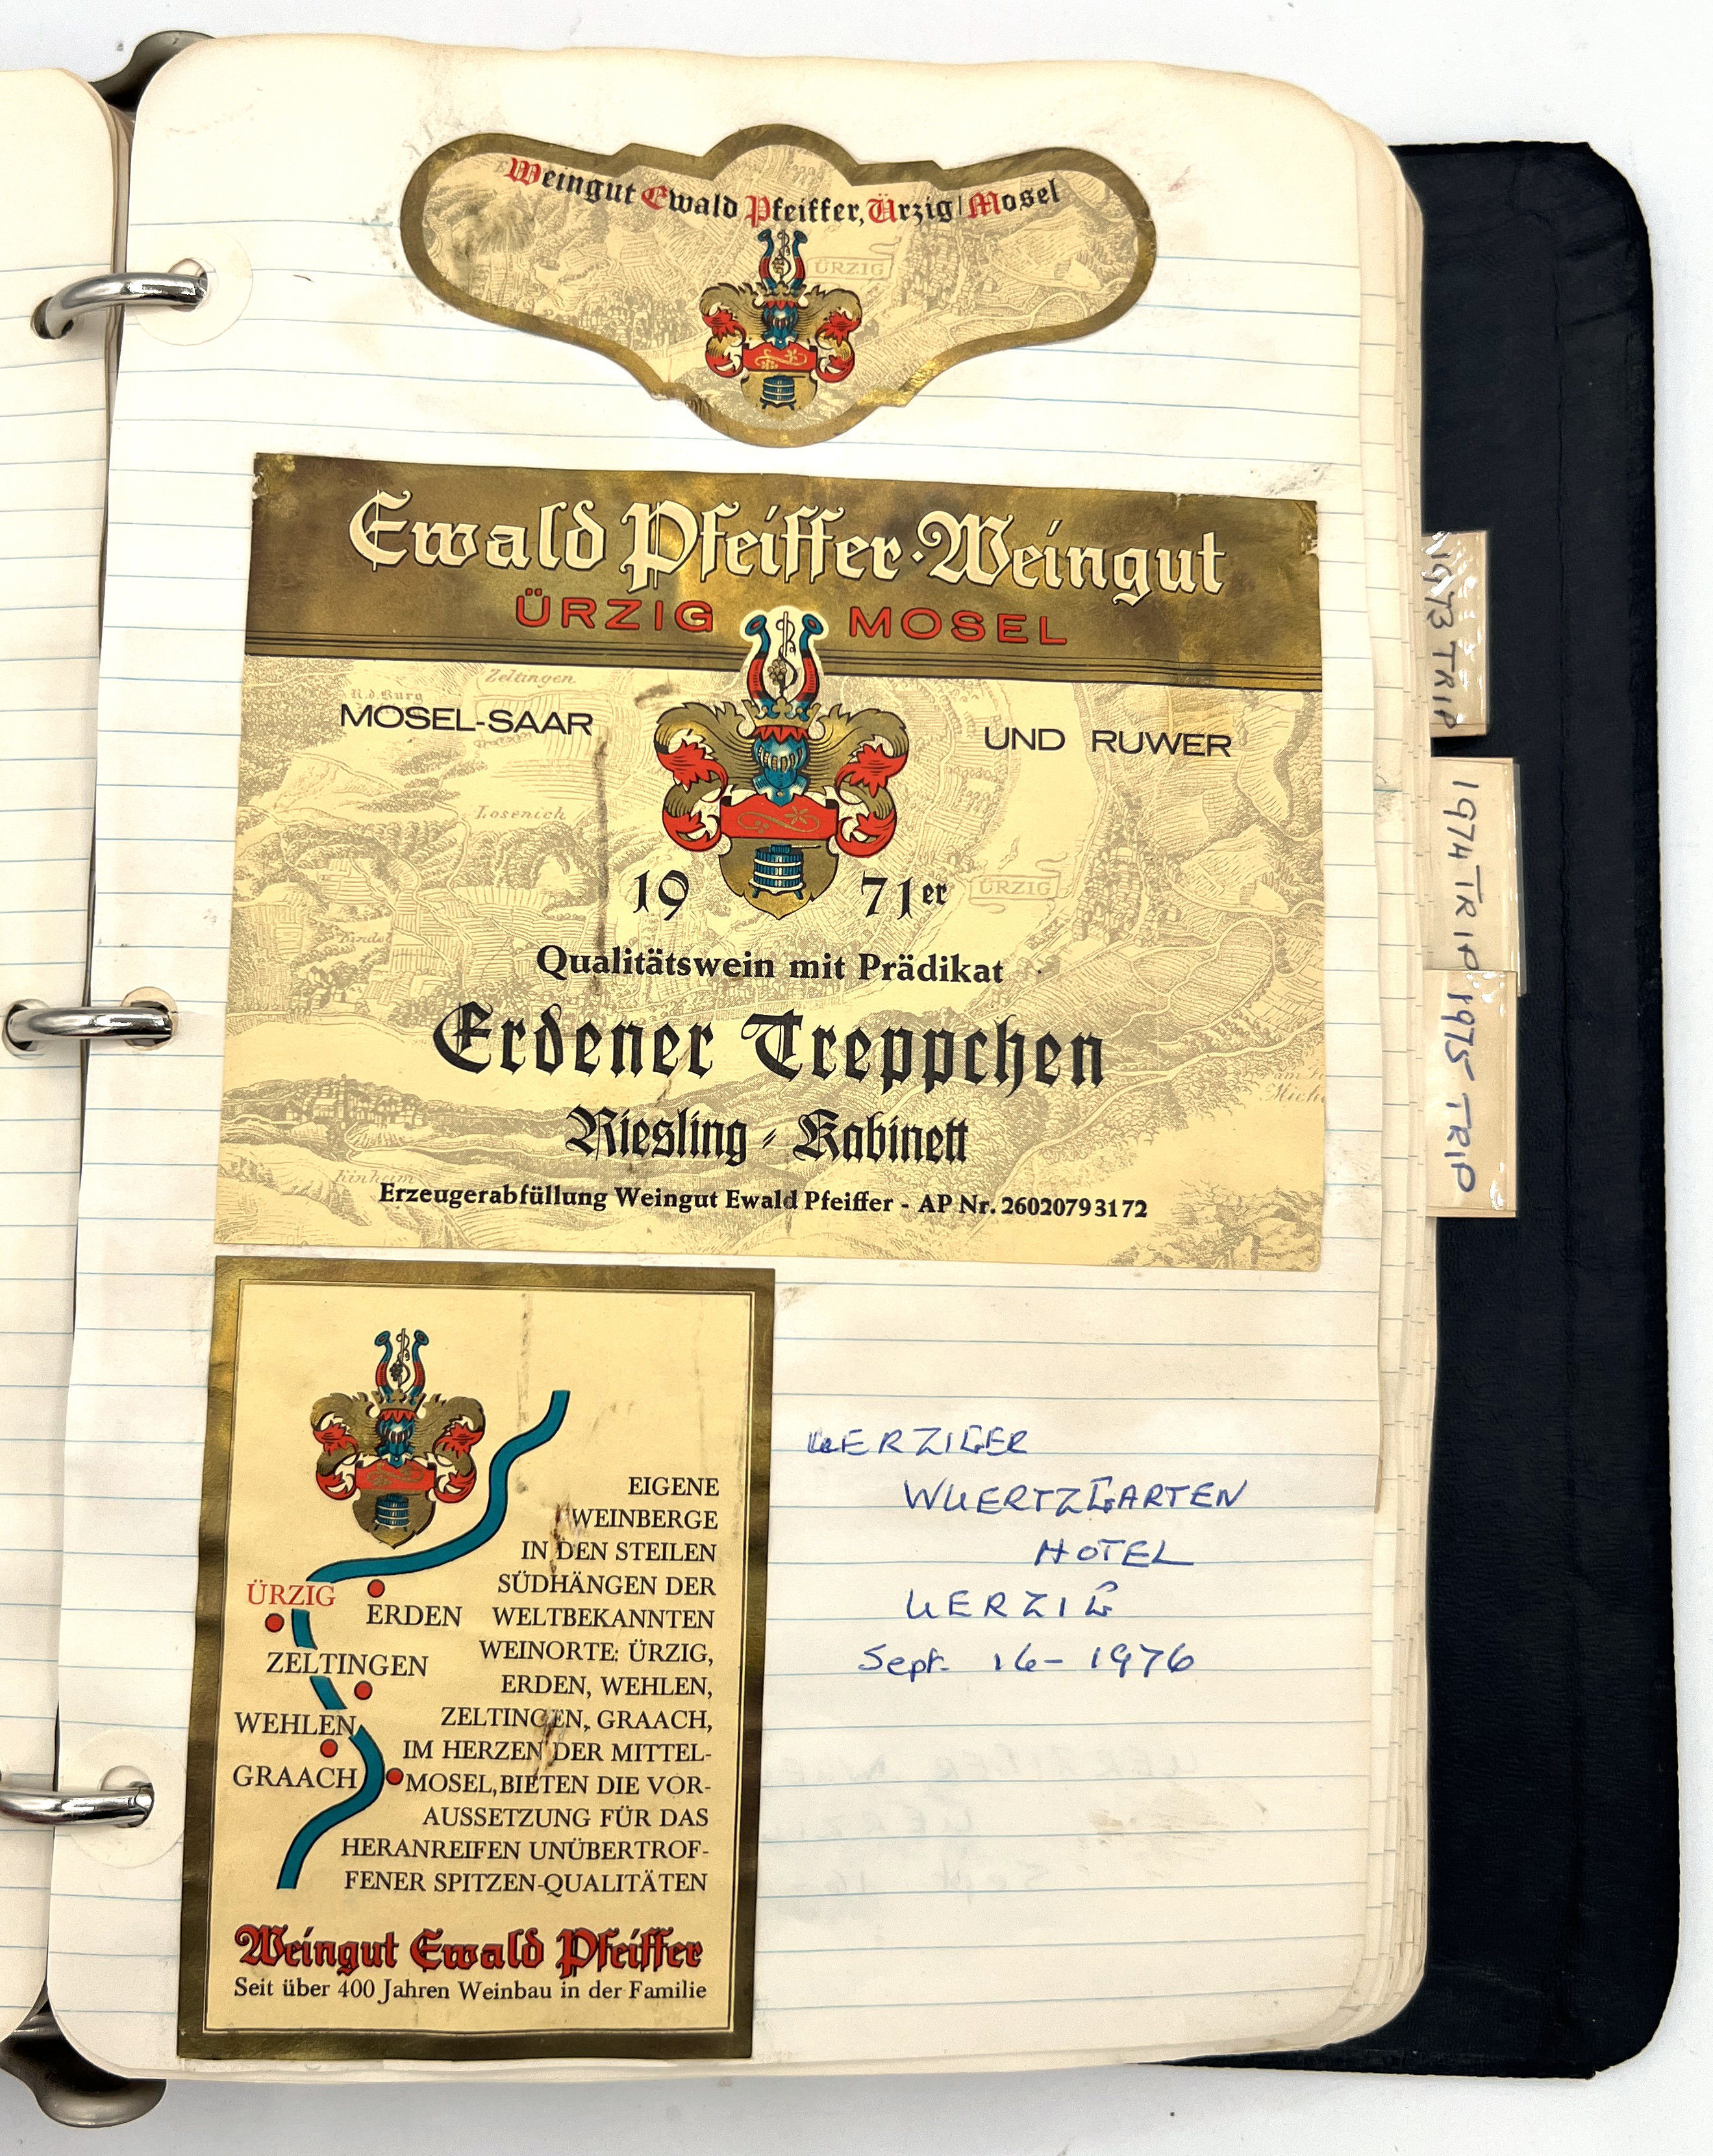 Weingut Ewald Pfeiffer, Ürzig/Mosel
ÜRZIG
Ewald Pfeiffer · Weingut
ÜRZIG MOSEL
Zeltingen
MOSEL-SAAR UND RUWER
Losenich
19 71er
ÜRZIG
Qualitätswein mit Prädikat
Erdener Treppchen
Riesling - Kabinett
Kinheim
Erzeugerabfüllung Weingut Ewald Pfeiffer - AP Nr. 26020793172
EIGENE
WEINBERGE
IN DEN STEILEN
SÜDHÄNGEN DER
WELTBEKANNTEN
WEINORTE: ÜRZIG,
ERDEN, WEHLEN,
ZELTINGEN, GRAACH,
IM HERZEN DER MITTEL-
MOSEL, BIETEN DIE VOR-
AUSSETZUNG FÜR DAS
HERANREIFEN UNÜBERTROF-
FENER SPITZEN-QUALITÄTEN
ÜRZIG
ERDEN
ZELTINGEN
WEHLEN
GRAACH
Weingut Ewald Pfeiffer
Seit über 400 Jahren Weinbau in der Familie
UERZIGER
WUERTZGARTEN
HOTEL
UERZIG
Sept. 16 - 1976
1973 TRIP
1974 TRIP
1975 TRIP